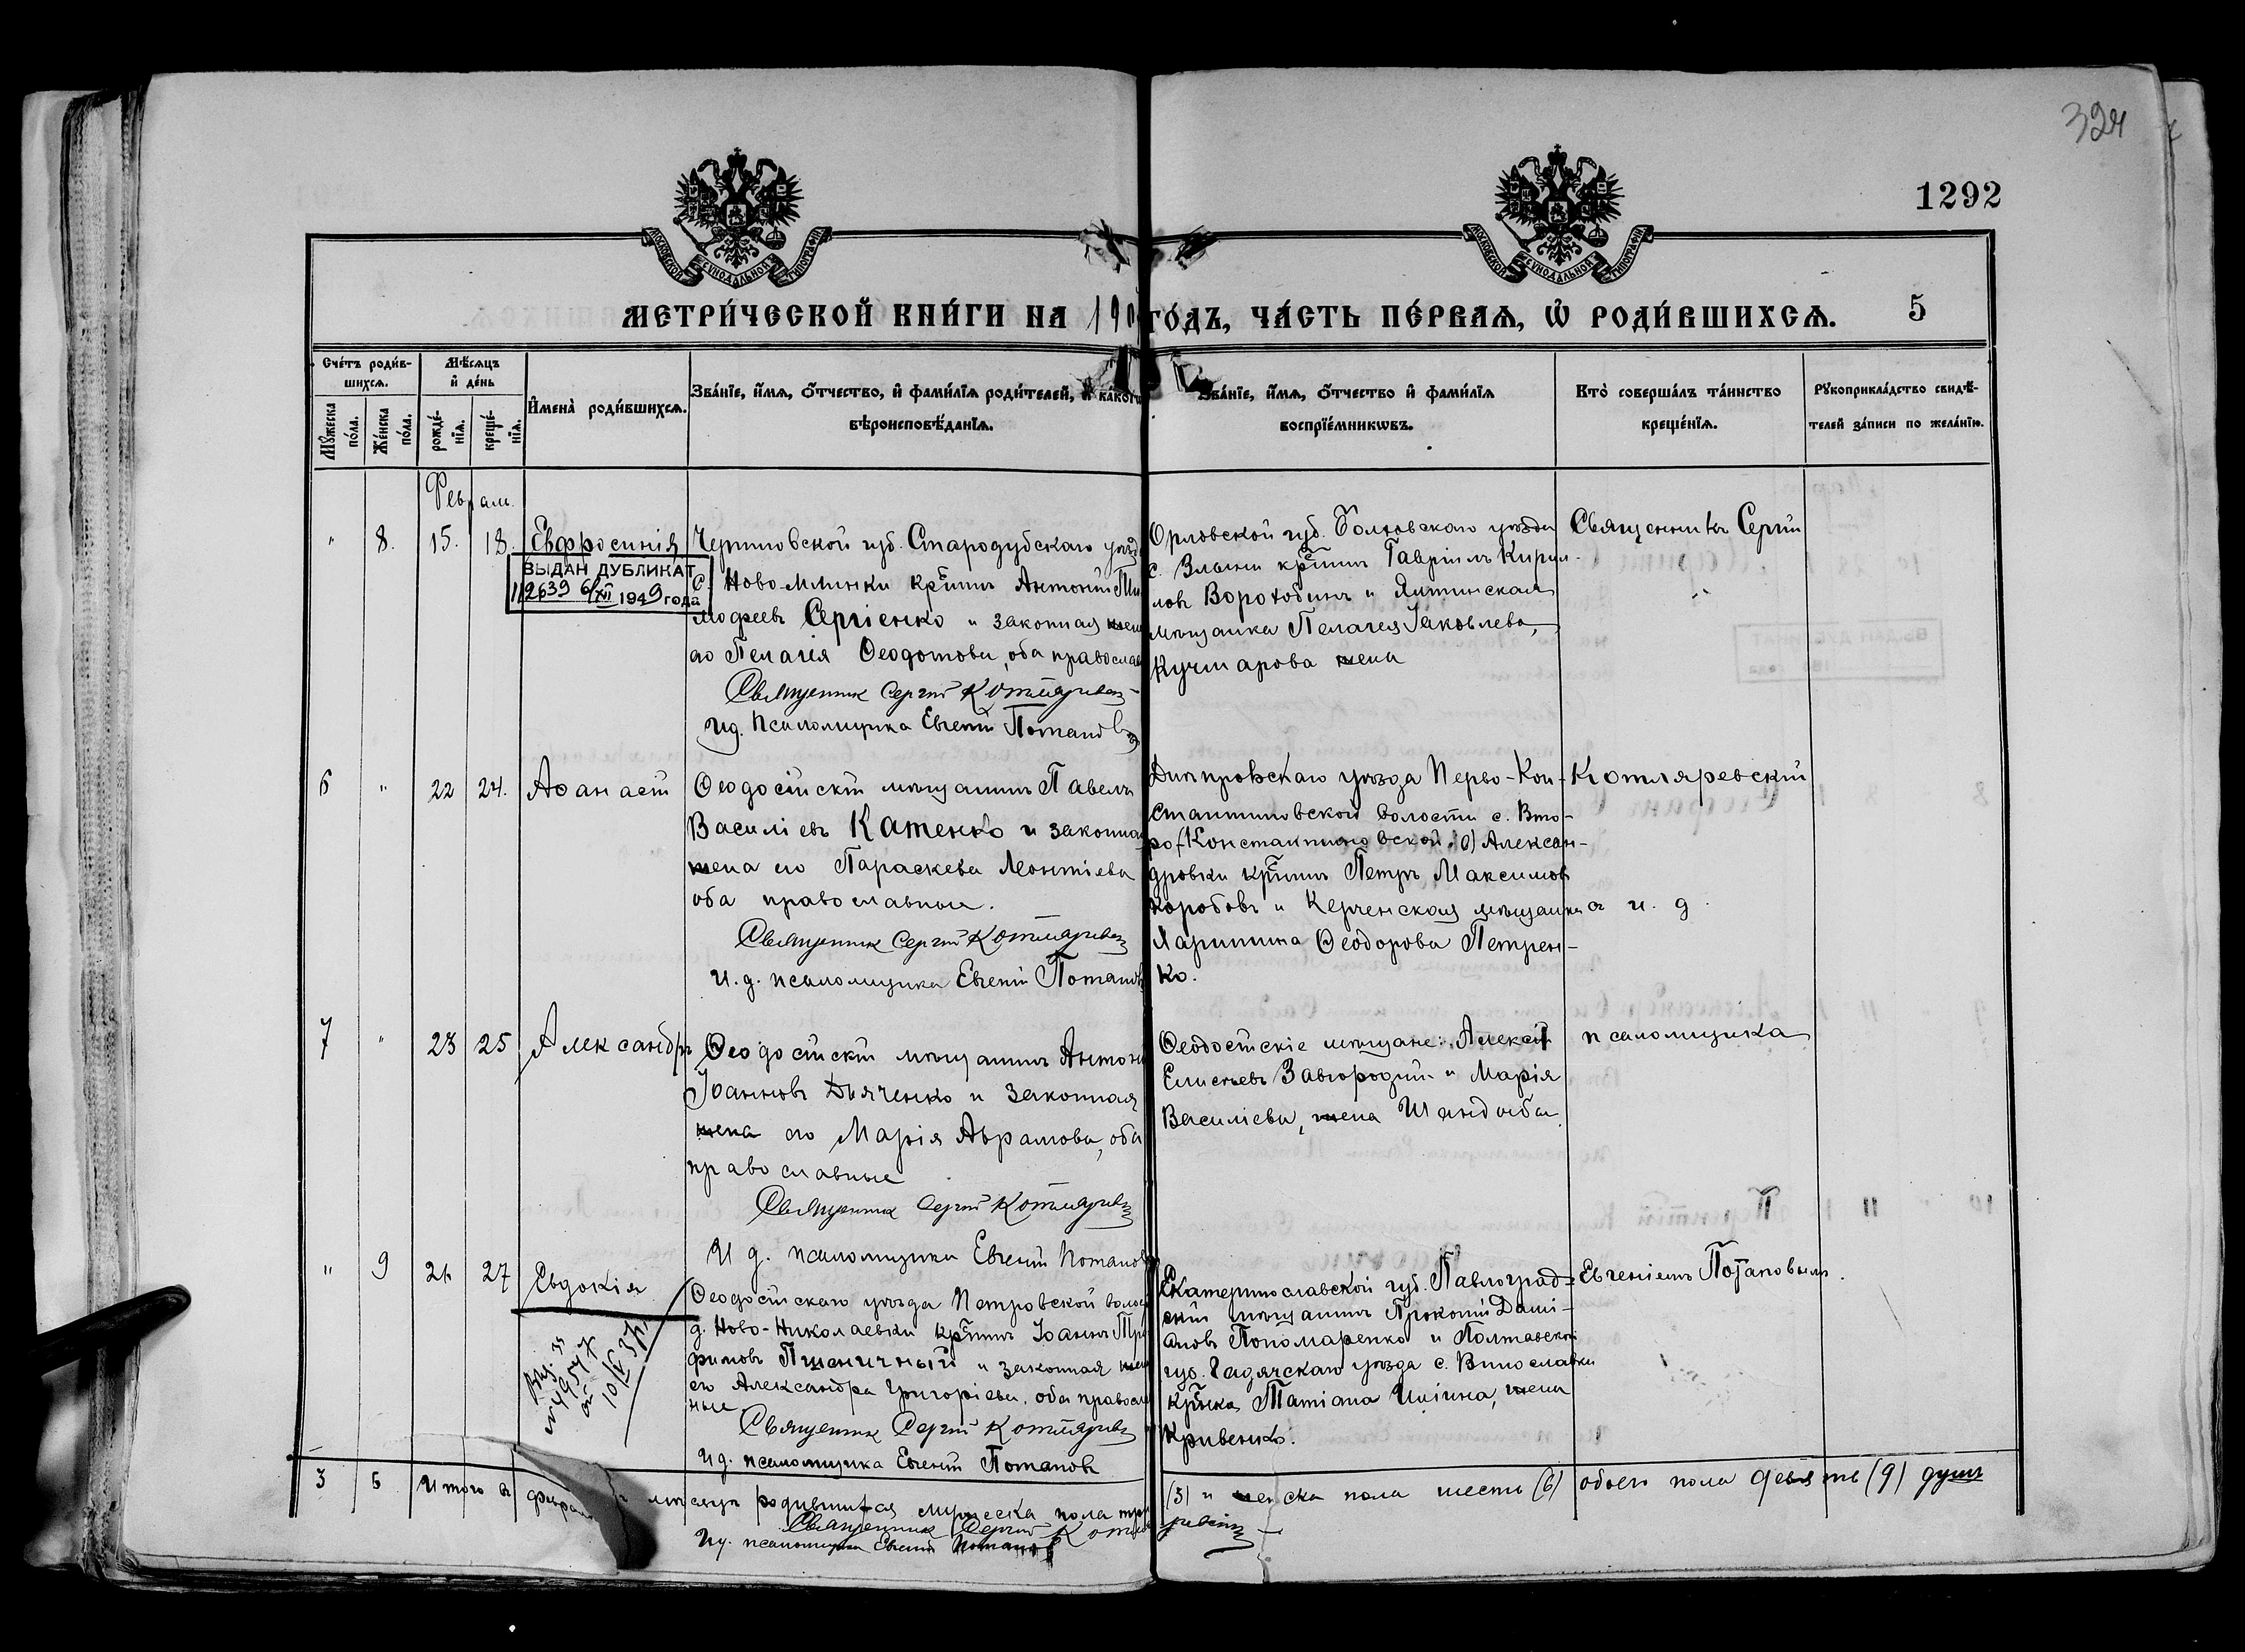 324
1292
МОСКОВСКОЙ СУНОДАЛЬНОЙ ТИПОГРАФІИ
МОСКОВСКОЙ СУНОДАЛЬНОЙ ТИПОГРАФІИ
МЕТРИ́ЧЕСКОЙ КНИ́ГИ НА 190 ГО́ДЪ, ЧА́СТЬ ПЕ́РВАѦ, Ѽ РОДИ́ВШИХСѦ. 5
Сче́тъ роди́в-
шихсѧ.
Мꙋ́жеска по́ла.
Же́нска по́ла.
Мѣ́сѧцъ
и҆ де́нь
рожде́-
нїѧ.
креще́-
нїѧ.
И҆мена̀ роди́вшихсѧ.
Зва́нїе, и҆́мѧ, ѻ҆́тчество, и҆ фами́лїѧ роди́телей, и҆ како́гѡ
вѣроисповѣ́данїѧ.
Зва́нїе, и҆́мѧ, ѻ҆́тчество и҆ фами́лїѧ
воспрїе́мникѡвъ.
Кто̀ соверша́лъ та́инство
креще́нїѧ.
Рꙋкоприкла́дство свидѣ́-
телей за́писи по жела́нїю.
Феврал
" 8. 15. 18. Евфросинія
ВЫДАН ДУБЛИКАТ
112639 6/XII 1949 года
Черниговской губ. Стародубскаго уѣзд
с. Ново-Млинки кр-нинъ Антоній Ти
мофеевъ Сергіенко и законная жен
его Пелагія Ѳеодотова, оба православ
Священник Сергій Котляревск
И д. псаломщика Евгеній Потаповъ
Орловской губ. Болховскаго уѣзда
с. Злыни кр-нинъ Гавріилъ Кирил-
ловъ Воротобинъ и Ялтинская
мѣщанка Пелагея Іаковлева,
Кучмарова жена
Священникъ Сергій
6 " 22 24. Аѳанасій
Ѳеодосійскій мѣщанинъ Павелъ
Василіевъ Катенко и законная
жена его Параскева Леонтіева
оба православные.
Священник Сергій Котляревск
И. д. псаломщика Евгеній Потаповъ
Днѣпровскаго уѣзда Перво-Кон-
стантиновской волости с. Вто-
ро-(Константиновской. о) Алексан-
дровки кр-нинъ Петръ Максимов
Коробовъ и Керченская мѣщанка
Ларинина Ѳеодорова Петрен-
ко.
Котляревскій
с и. д.
7 " 23 25 Александръ
Ѳеодосійскій мѣщанинъ Антоній
Іоанновъ Дьяченко и законная
жена его Марія Аврамова, оба
православные
Священник Сергій Котляревск
И д. псаломщика Евгеній Потапов
Ѳеодосійскіе мѣщане: Алексій
Елисѣевъ Завгородній и Марія
Василіева, жена Шандыба.
псаломщика
" 9 26 27 Евдокія
Ѳеодосійскаго уѣзда Петровской волос
д. Ново-Николаевки кр-нинъ Іоаннъ Тро
фимовъ Пшеничный и законная жена
его Александра Григоріева, оба правосл
ные
Священник Сергій Котляревск
И д. псаломщика Евгеній Потаповъ
Екатеринославской губ. Павлоград-
скій мѣщанинъ Прокопій Дамі-
ановъ Пономаренко и Полтавской
губ. Гадячскаго уѣзда с. Винославки
кр-нка Татіана Иліина, жена
Кривенко.
Евгеніемъ Потаповымъ.
3 6 Итого въ феврал мѣсяцѣ родившихся мужеска пола три (3) и женска пола шесть (6) обоего пола девять (9) душъ
Священник Сергій Котляревскій
И д. псаломщика Евгеній Потаповъ